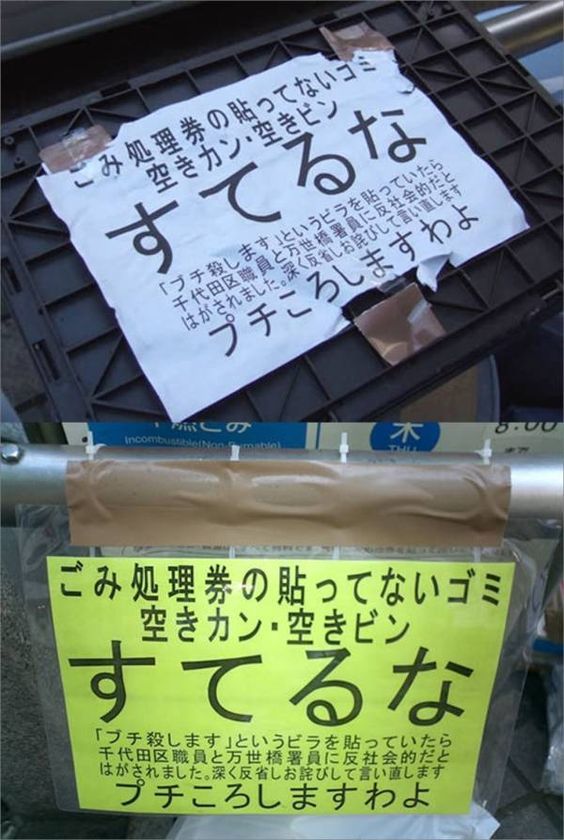 ごみ処理券の貼ってないゴミ
空きカン・空きビン
すてるな
「ブチ殺します」というビラを貼っていたら
千代田区職員と万世橋署員に反社会的だと
はがされました。深く反省しお詫びして言い直します
プチころしますわよ
不燃ごみ
Incombustible(Non-Burnable)
木
THU
8:00
まで
ごみ処理券の貼ってないゴミ
空きカン・空きビン
すてるな
「ブチ殺します」というビラを貼っていたら
千代田区職員と万世橋署員に反社会的だと
はがされました。深く反省しお詫びして言い直します
プチころしますわよ